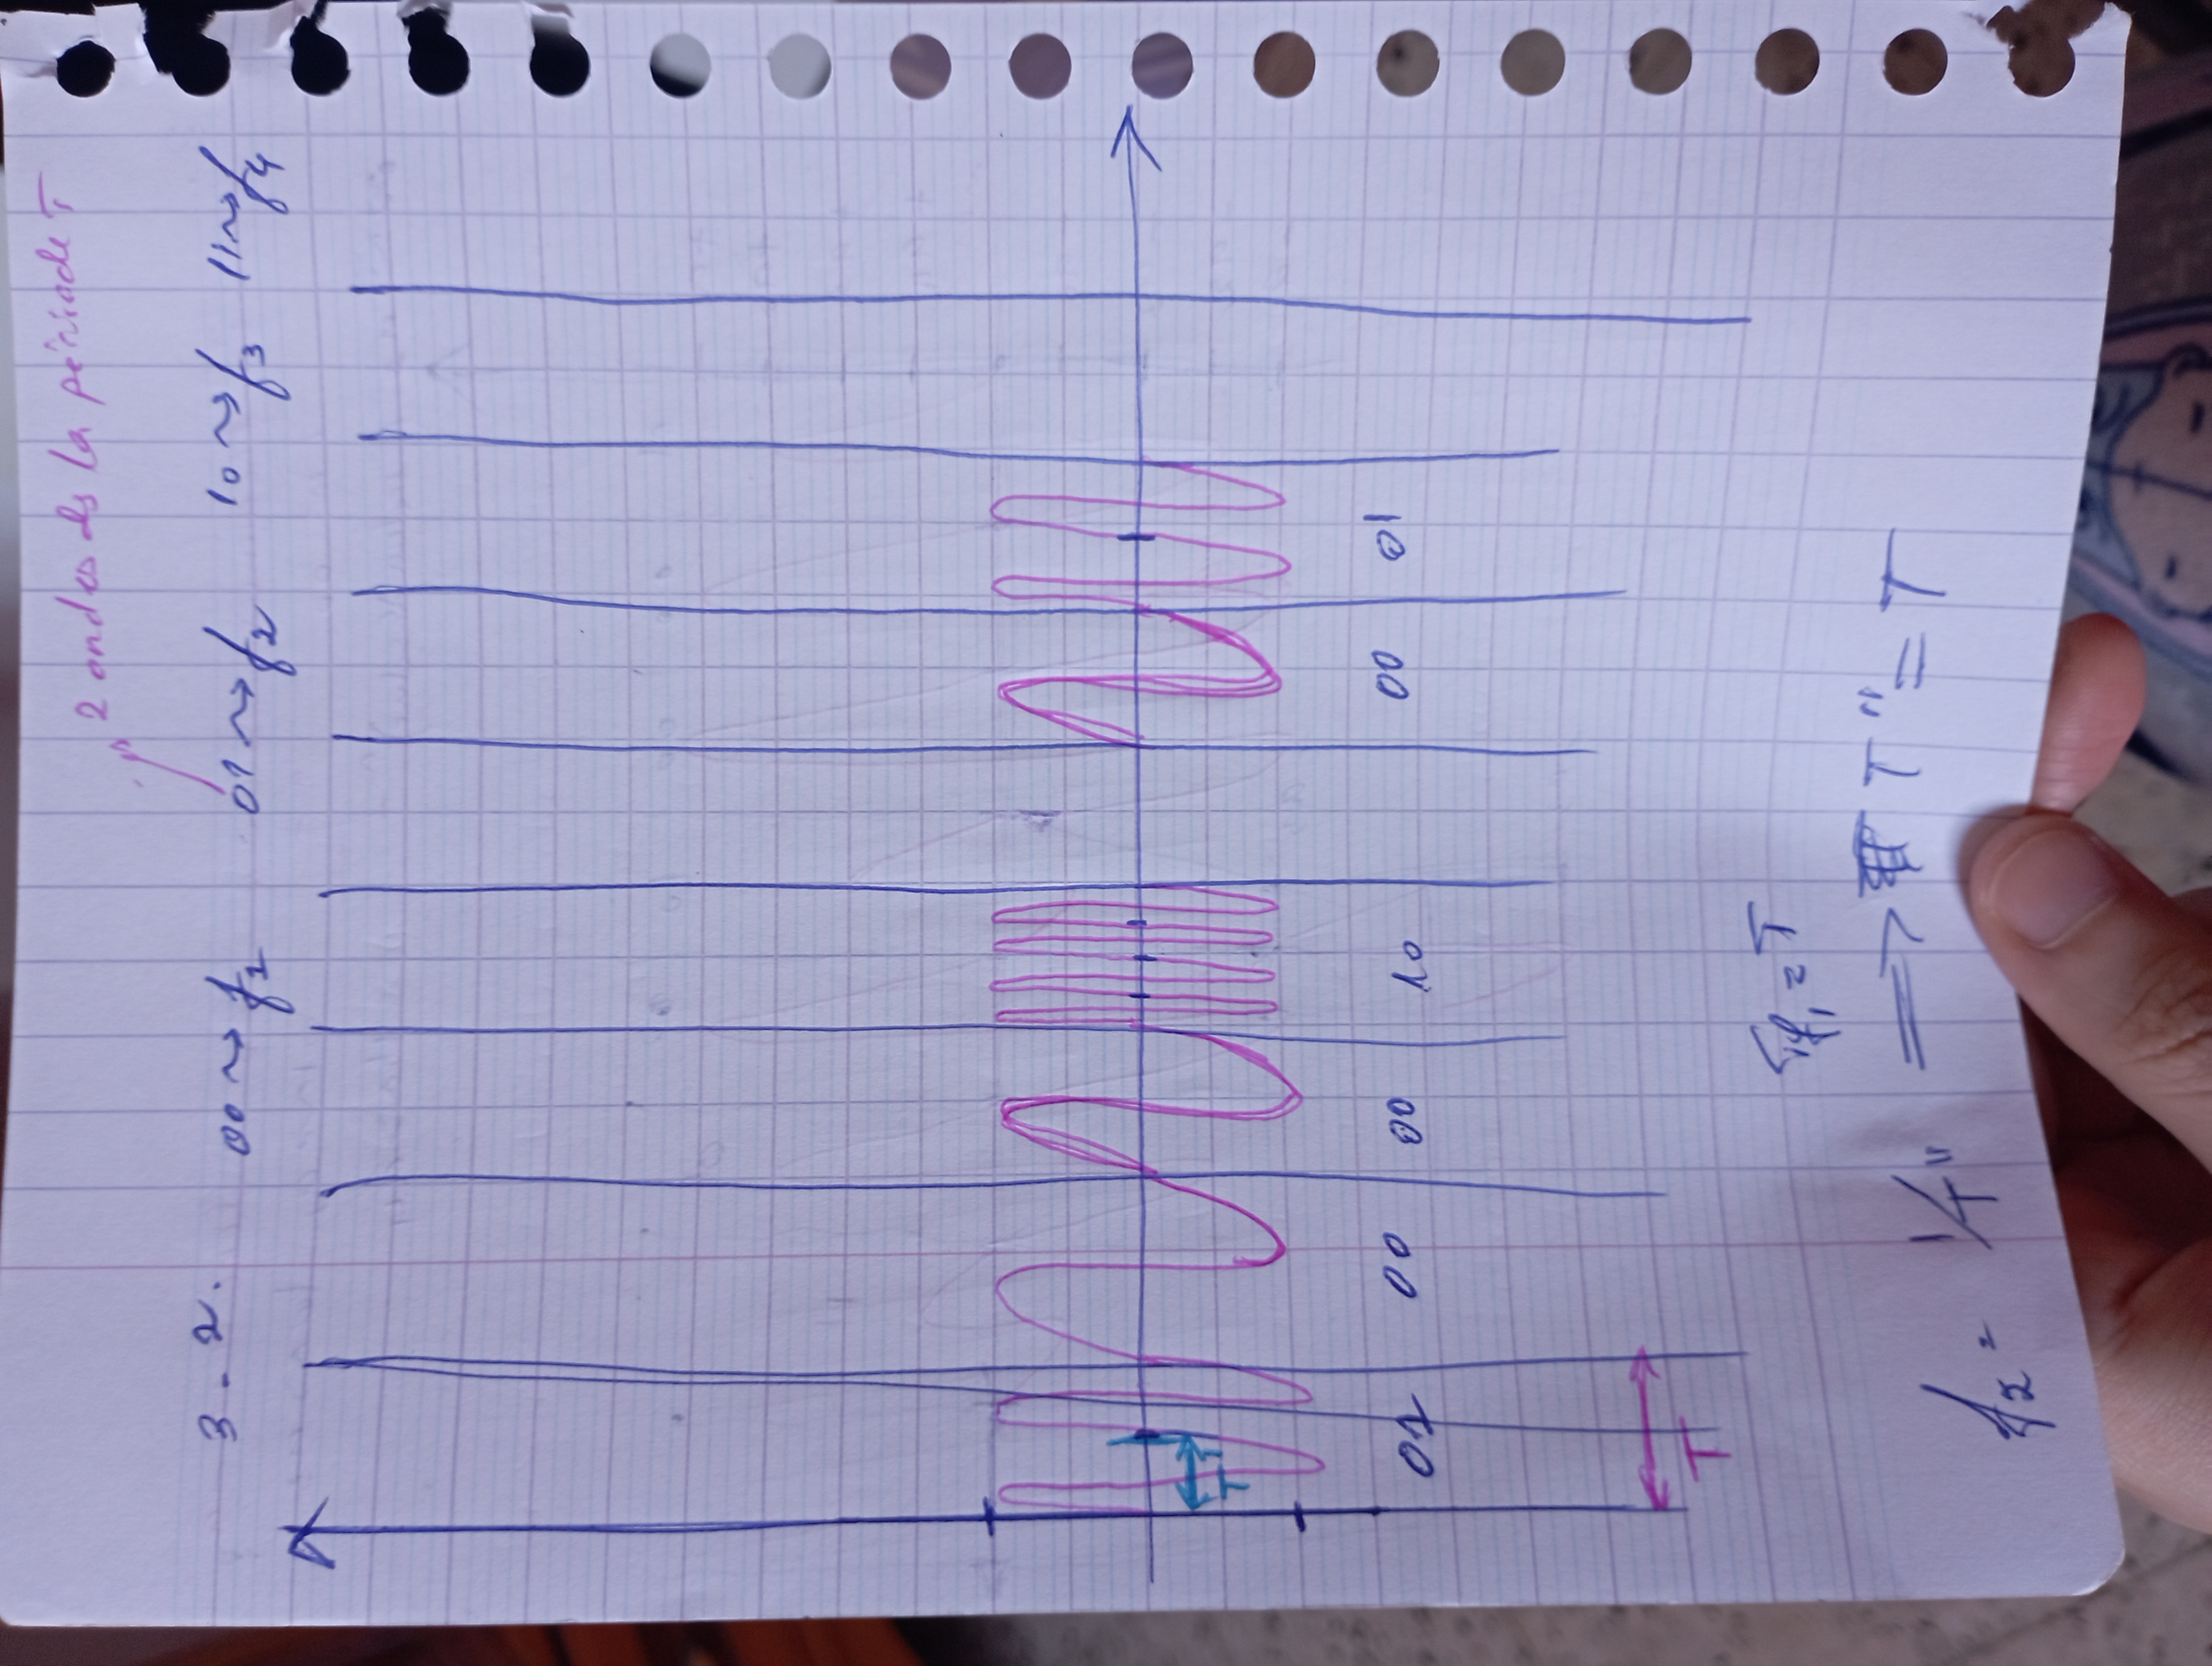 2 ondes ds la période T
3-2. 00 ⇝ f1 01 ⇝ f2 10 ⇝ f3 11 ⇝ f4
T
01 00 00 10 00 01
T
Tf1 = T
f2 = 1/T" ⟹ T" = T